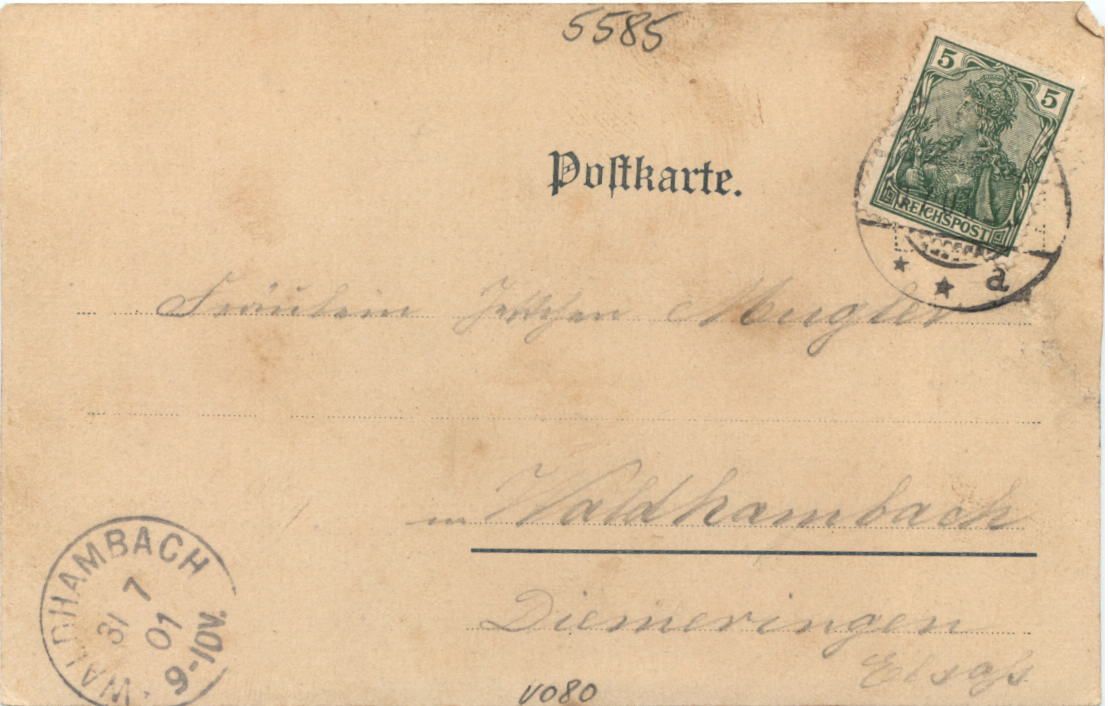 5585
5 5
REICHSPOST
Postkarte.
a
Fräulein Jettchen Mugler
in Waldhambach
Diemeringen
Elsaß
WALDHAMBACH
31 7
01
9-10V.
V080